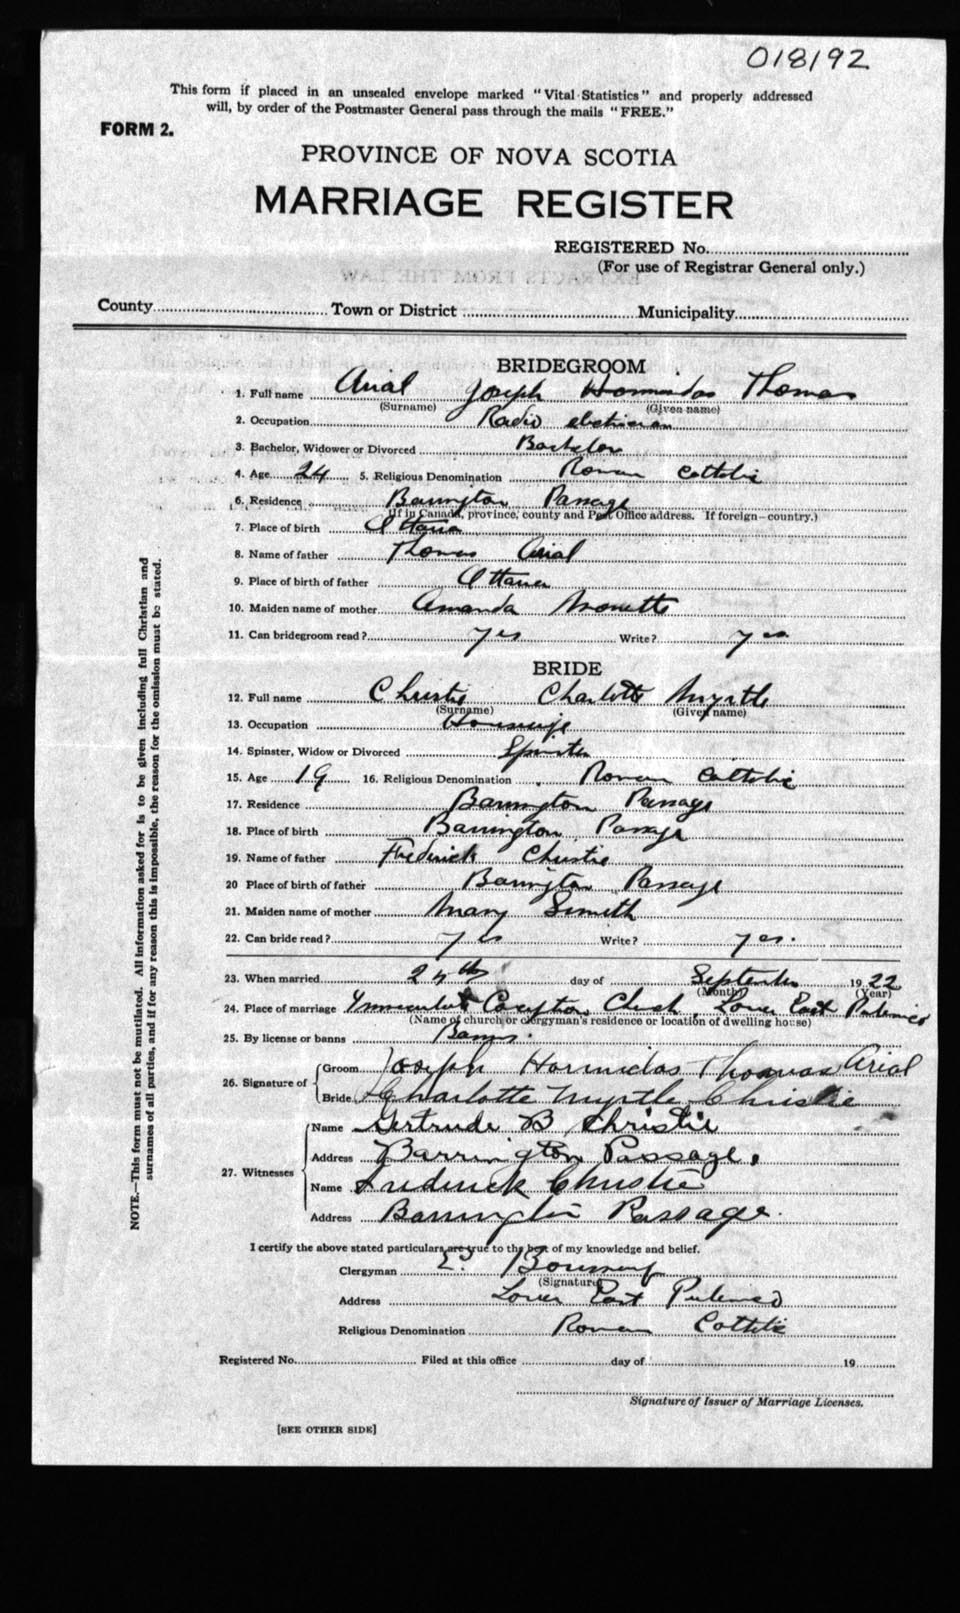 018192
This form if placed in an unsealed envelope marked "Vital Statistics" and properly addressed
will, by order of the Postmaster General pass through the mails "FREE."
FORM 2.
PROVINCE OF NOVA SCOTIA
MARRIAGE REGISTER
REGISTERED No.
(For use of Registrar General only.)
County Town or District Municipality
BRIDEGROOM
1. Full name Arial Joseph Hormidas Thomas
(Surname) (Given name)
2. Occupation Radio electrician
3. Bachelor, Widower or Divorced Bachelor
4. Age 24 5. Religious Denomination Roman Catholic
6. Residence Barrington Passage
(If in Canada, province, county and Post Office address. If foreign—country.)
7. Place of birth Ottawa
8. Name of father Thomas Arial
9. Place of birth of father Ottawa
10. Maiden name of mother Amanda
11. Can bridegroom read? yes Write? yes
BRIDE
12. Full name Christie Charlotte Myrtle
(Surname) (Given name)
13. Occupation
14. Spinster, Widow or Divorced Spinster
15. Age 19 16. Religious Denomination Roman Catholic
17. Residence Barrington Passage
18. Place of birth Barrington Passage
19. Name of father Frederick Christie
20 Place of birth of father Barrington Passage
21. Maiden name of mother Mary Smith
22. Can bride read? yes Write? yes.
23. When married 24th day of September 1922
(Month) (Year)
24. Place of marriage Immaculate Conception Church, Lower East Pubnico
(Name of church or clergyman's residence or location of dwelling house)
25. By license or banns Banns.
26. Signature of Groom Joseph Hormidas Thomas Arial
Bride Charlotte Myrtle Christie
27. Witnesses Name Gertrude B. Christie
Address Barrington Passage.
Name Frederick Christie
Address Barrington Passage.
I certify the above stated particulars are true to the best of my knowledge and belief.
Clergyman E.
(Signature)
Address Lower East Pubnico
Religious Denomination Roman Catholic
Registered No. Filed at this office day of 19
Signature of Issuer of Marriage Licenses.
[SEE OTHER SIDE]
NOTE.—This form must not be mutilated. All information asked for is to be given including full Christian and
surnames of all parties, and if for any reason this is impossible, the reason for the omission must be stated.